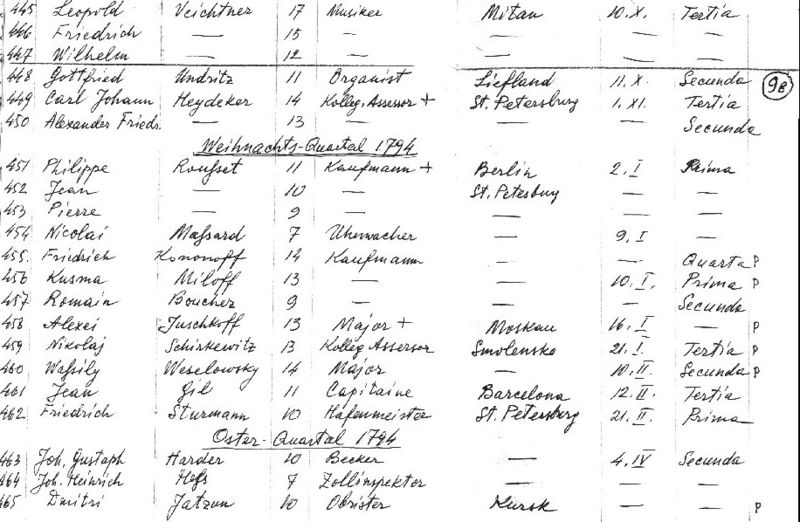 445 Leopold Veichtner 17 Musiker Mitau 10.X. Tertia
446 Friedrich — 15 — — — —
447 Wilhelm — 12 — — — —
448 Gottfried Undritz 11 Organist Liefland 11.X. Secunda 9B
449 Carl Johann Heydeker 14 Kolleg. Assessor + St. Petersburg 1.XI. Tertia
450 Alexander Friedr. — 13 — — — Secunda
Weihnachts-Quartal 1794
451 Philippe Roufset 11 Kaufmann + Berlin 2.I Prima
452 Jean — 10 — St. Petesburg — —
453 Pierre — 9 — — — —
454 Nicolai Mafsard 7 Uhrmacher — 9.I —
455. Friedrich Kononoff 14 Kaufmann — — Quarta P
456 Kusma Miloff 13 — — 10.I. Prima P
457 Romain Boucher 9 — — — Secunda
458 Alexei Juschkoff 13 Major + Moskau 16.I — P
459 Nikolaj Schirkewitz 13 Kolleg. Assessor Smolensko 21.I. Tertia P
460 Wafsily Weselowsky 14 Major — 10.II. Secunda P
461 Jean Gil 11 Capitaine Barcelona 12.II. Tertia
462 Friedrich Sturmann 10 Hafenmeister St. Petersburg 21.II. Prima
Oster-Quartal 1794
463 Joh. Gustaph Harder 10 Becker — 4.IV Secunda
464 Joh. Heinrich Hefs 7 Zollinspektor — — —
465 Dmitri Jatzun 10 Obrister Kursk — — P